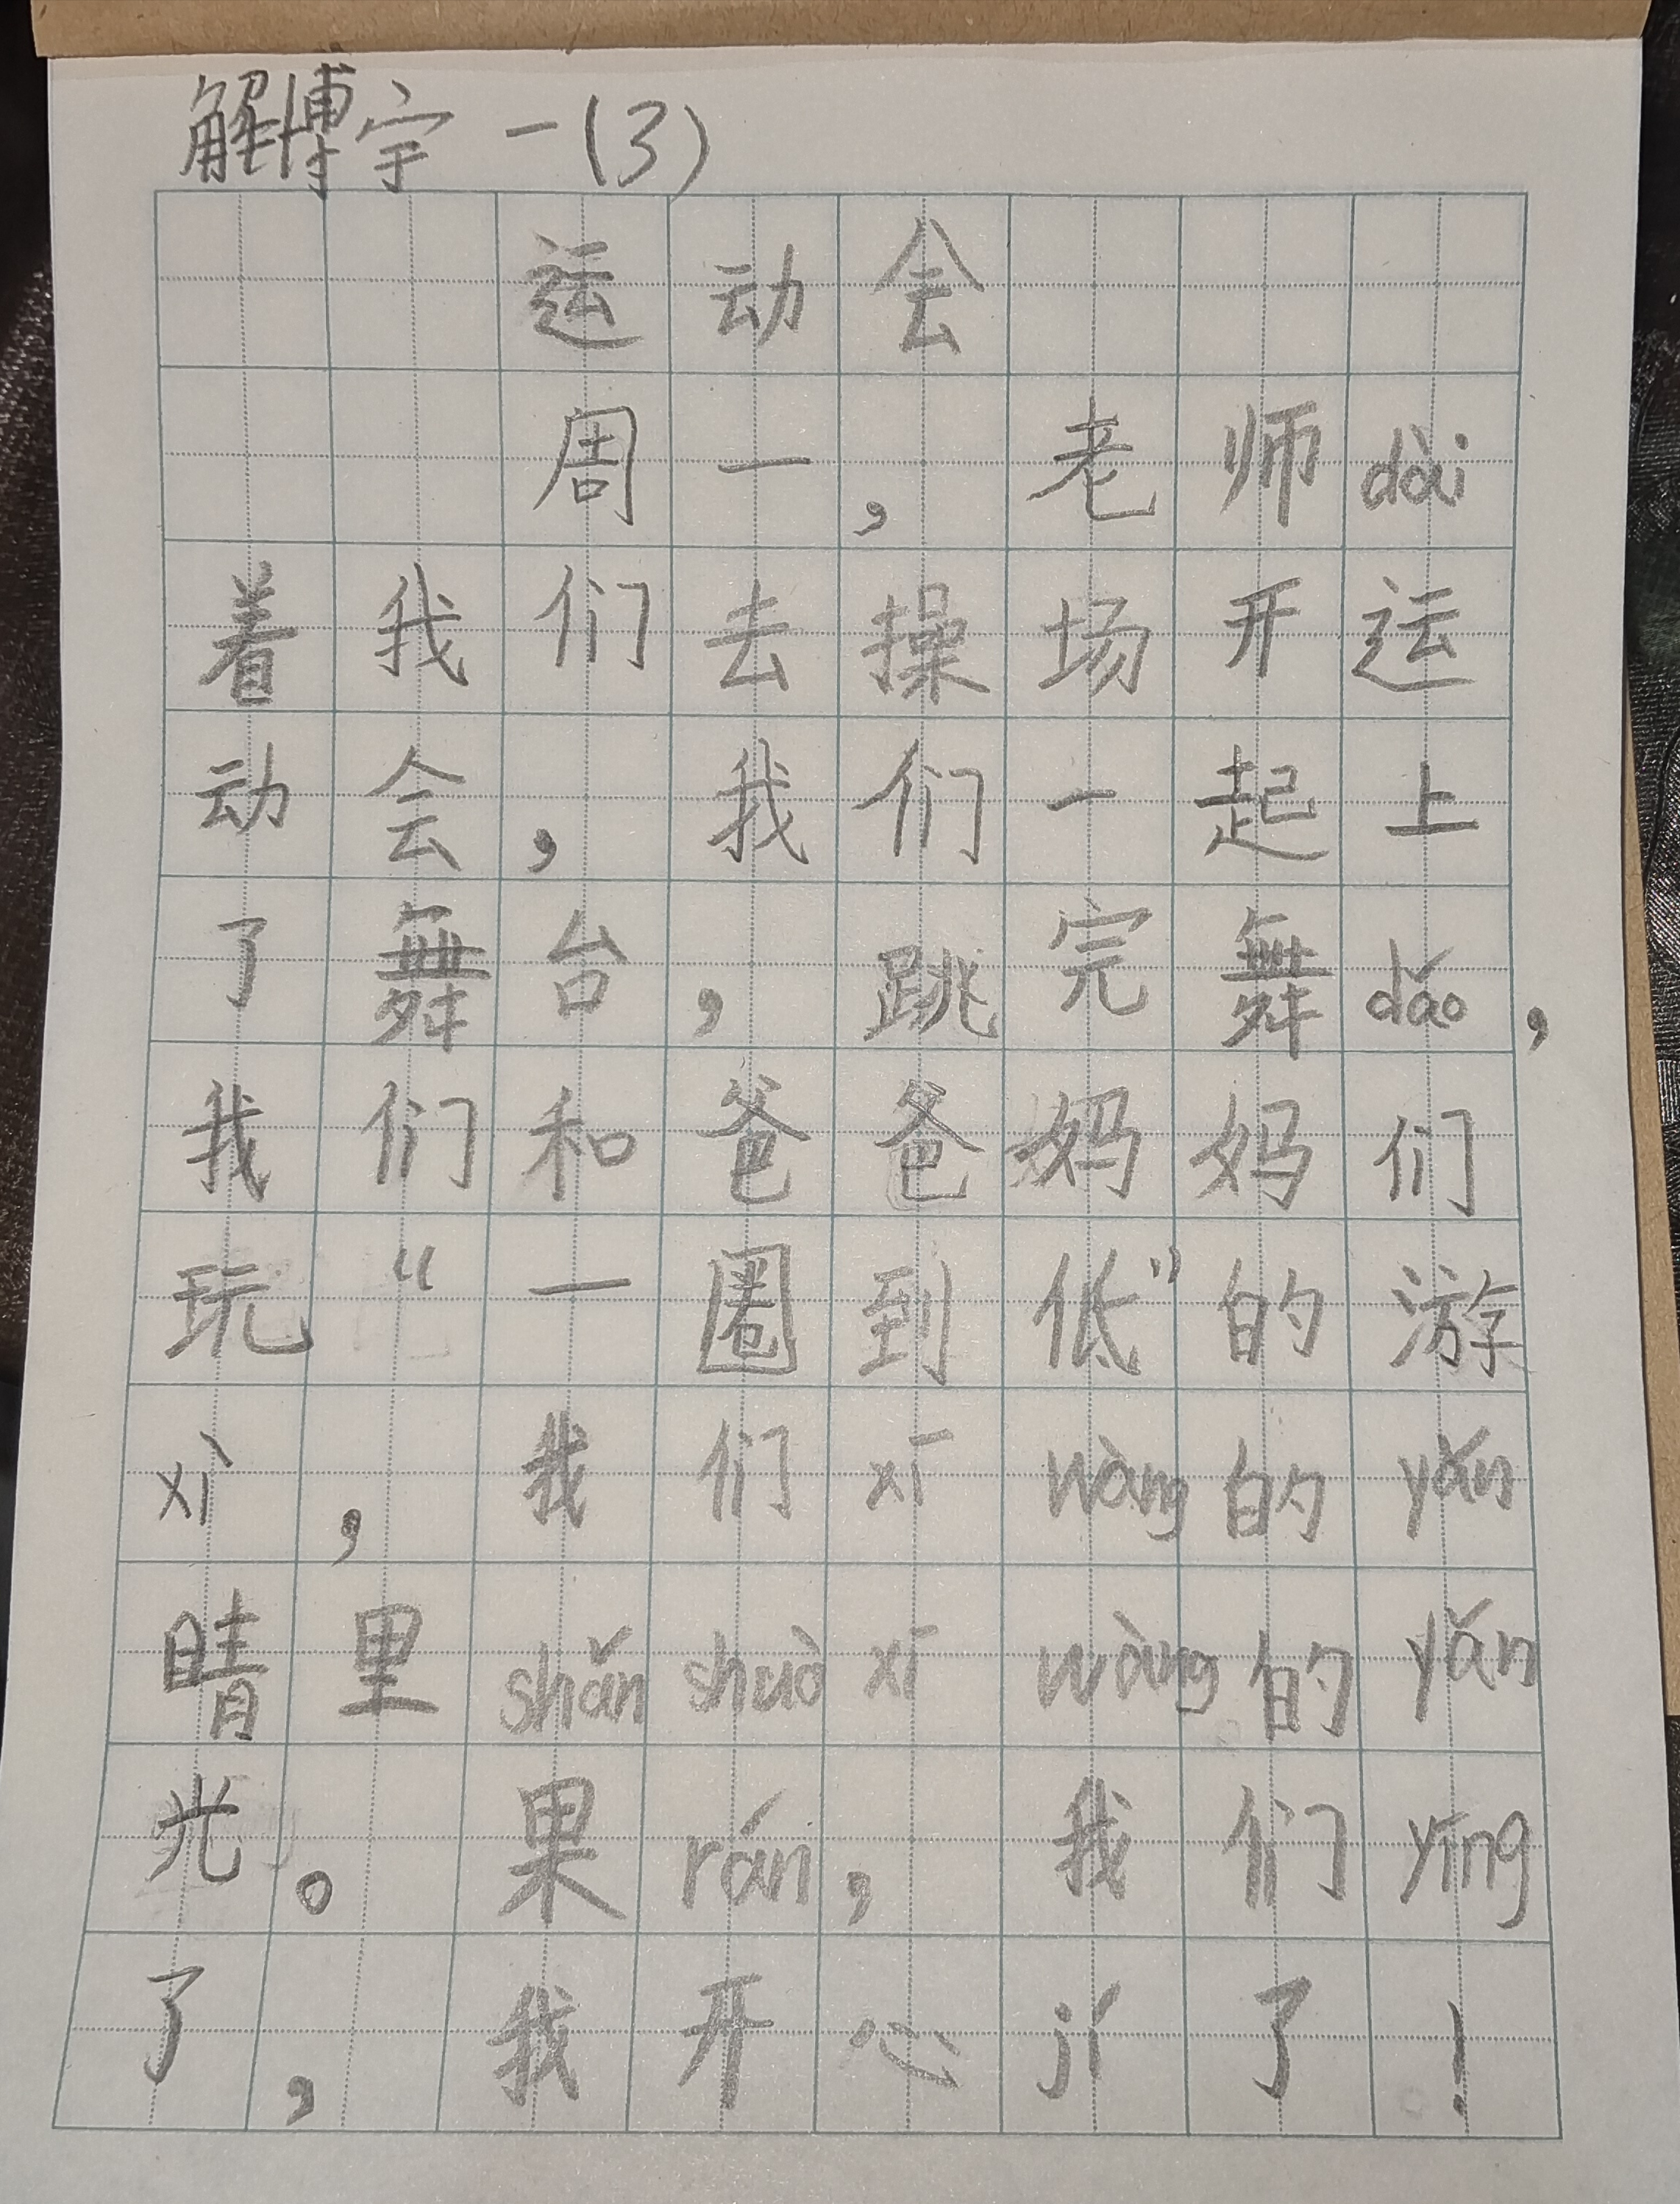 解博宇 一(3)
运动会
周一，老师dài
着我们去操场开运
动会，我们一起上
了舞台，跳完舞dǎo，
我们和爸爸妈妈们
玩“一圈到低”的游
xì，我们xī wàng的yǎn
睛里shǎn shuò xī wàng的yǎn
光。果rán，我们yíng
了，我开心jí了！